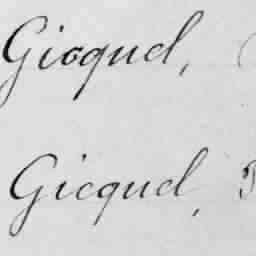 Gicquel,
Gicquel,